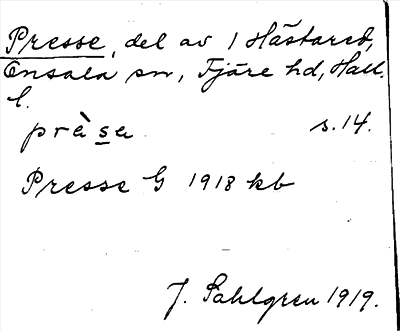 Presse, del av 1 Hästared,
Onsala sn, Fjäre hd, Hall.
l.
prèse s.14.
Presse G 1918 kb
J. Sahlgren 1919.